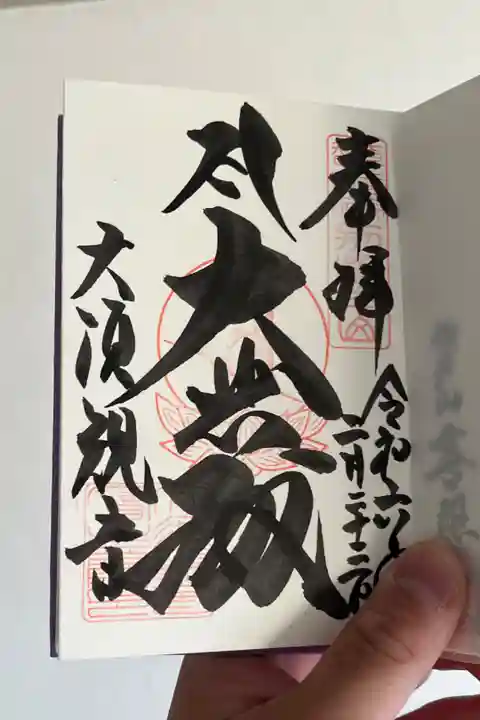 奉拝
令和六年
二月二十二日
大悲殿
大須観音